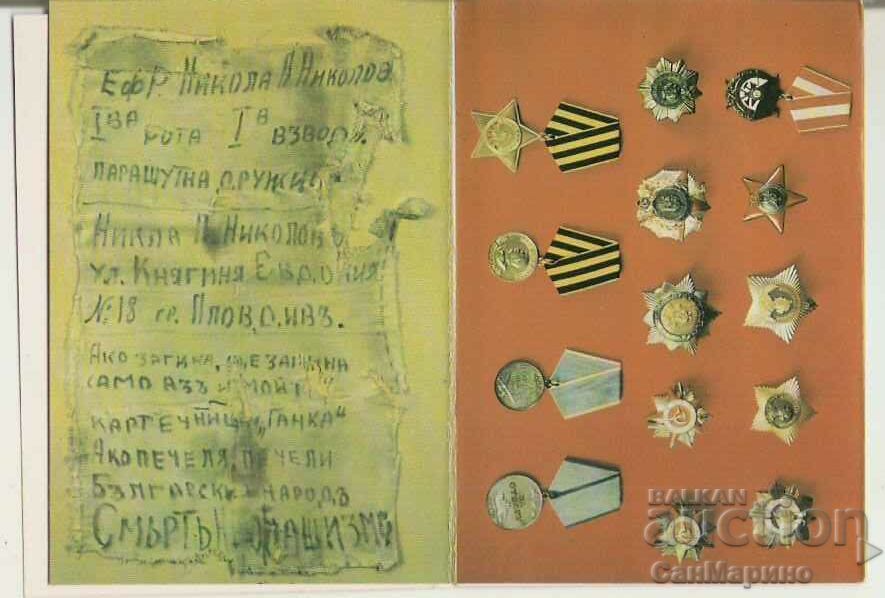 ЕФР. НИКОЛА П НИКОЛОВ
Iва РОТА Iв ВЗВОД.
ПАРАШУТНА ДРУЖИ
НИКЛА П. НИКОЛОВ
УЛ. КНЯГИНЯ ЕВДОКИЯ
№18 ГР. ПЛОВДИВЪ.
АКО ЗАГИНА, ЩЕ ЗАГИНА
САМО АЗЪ И МОЙТ
КАРТЕЧНИЦА „ГАНКА“
АКО ПЕЧЕЛЯ, ПЕЧЕЛИ
БЪЛГАРСКИ НАРОДЪ
СМЪРТЬ НА ФАШИЗМЪ
BALKAN
auction
СанМарино